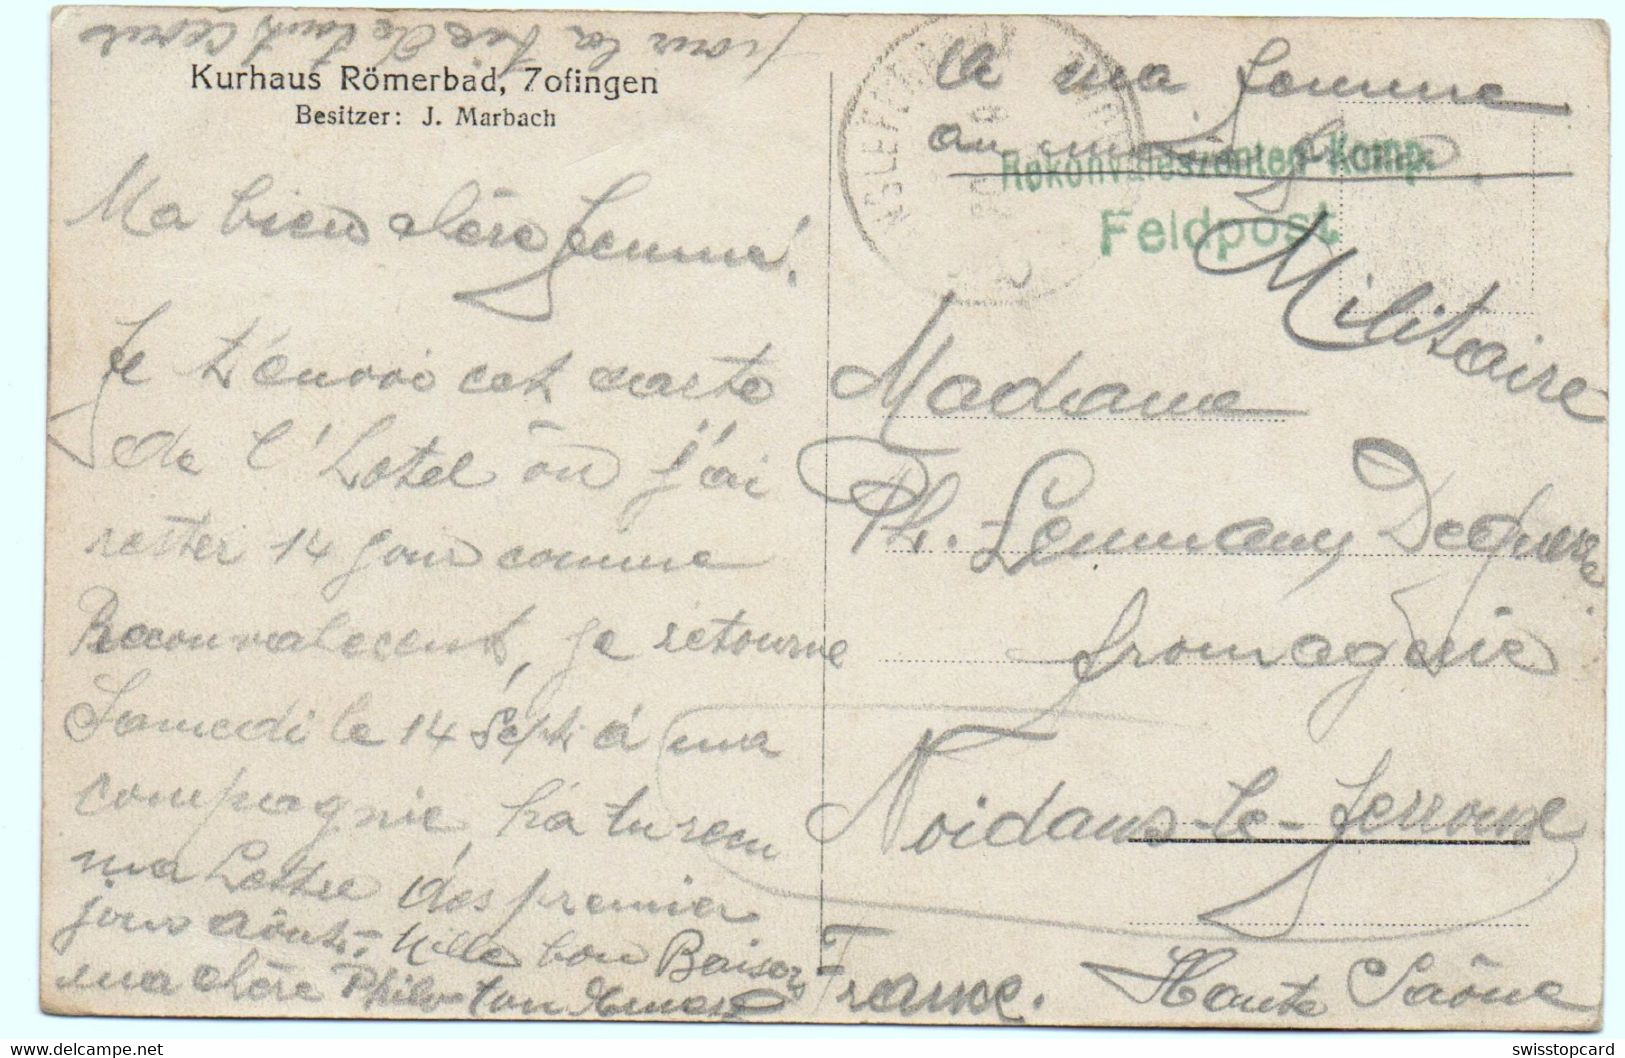 pour la vie de tout cœur
Kurhaus Römerbad, Zofingen
Besitzer: J. Marbach
Ma bien chère femme!
Je t'envoi cet carte
de l'Hotel ôu j'ai
rester 14 jour comme
Raconvalecent, je retourne
Samedi le 14 Sept. à ma
compagnie, h'a tu recu
ma Lettre des premier
jours Aôut, Mille bon Baisers
ma chère Philo ton
a ma femme
au
Rekonvaleszenten-Komp.
Feldpost
Militaire
Madame
Ph. Lemmany Dequerre
fromagerie
Noidans-le-ferroux
France. Haute Saône
swisstopcard